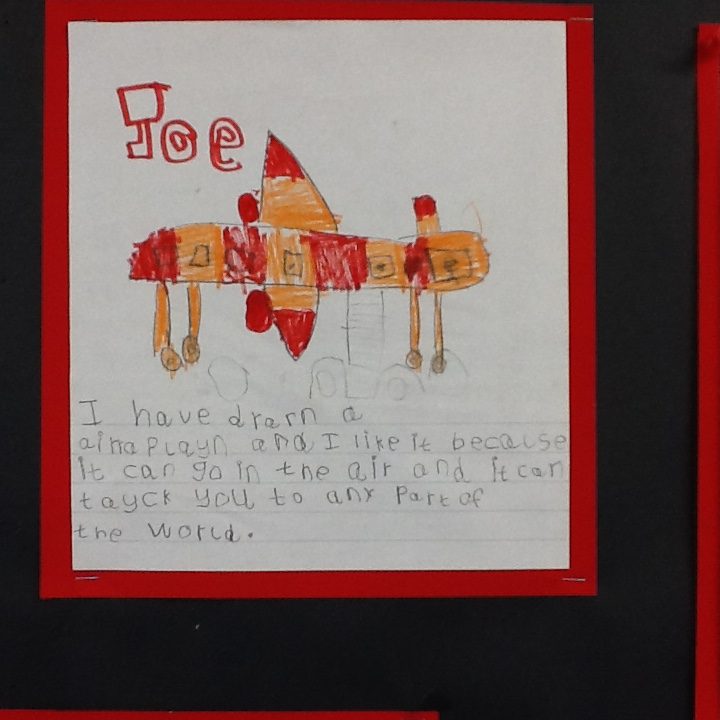 Joe
I have drarn a
airaplayn and I like it because
it can go in the air and it can
tayck you to any part of
the world.